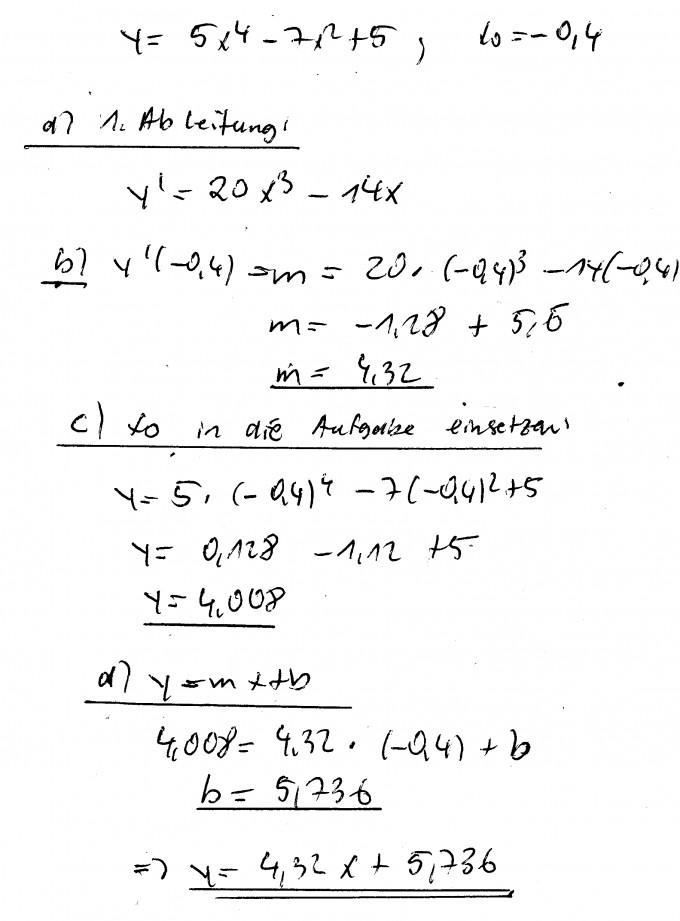 y = 5x⁴ - 7x² + 5 ; x₀ = -0,4
a) 1. Ableitung:
y' = 20x³ - 14x
b) y'(-0,4) = m = 20 · (-0,4)³ - 14(-0,4)
m = -1,28 + 5,6
m = 4,32
c) x₀ in die Aufgabe einsetzen:
y = 5 · (-0,4)⁴ - 7(-0,4)² + 5
y = 0,128 - 1,12 + 5
y = 4,008
d) y = mx + b
4,008 = 4,32 · (-0,4) + b
b = 5,736
=> y = 4,32x + 5,736